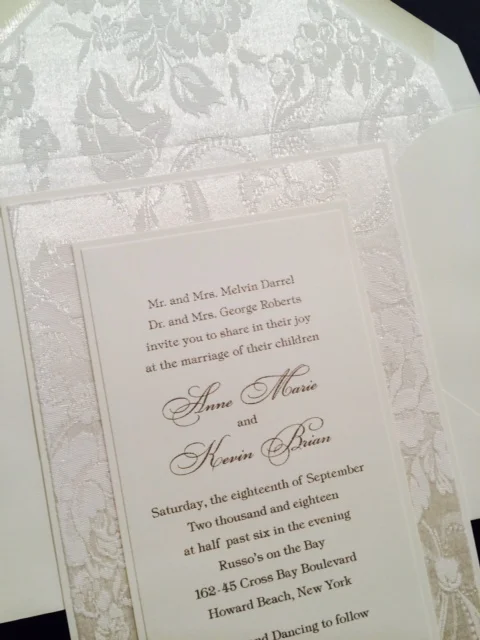 Mr. and Mrs. Melvin Darrel
Dr. and Mrs. George Roberts
invite you to share in their joy
at the marriage of their children
Anne Marie
and
Kevin Brian
Saturday, the eighteenth of September
Two thousand and eighteen
at half past six in the evening
Russo's on the Bay
162-45 Cross Bay Boulevard
Howard Beach, New York
and Dancing to follow